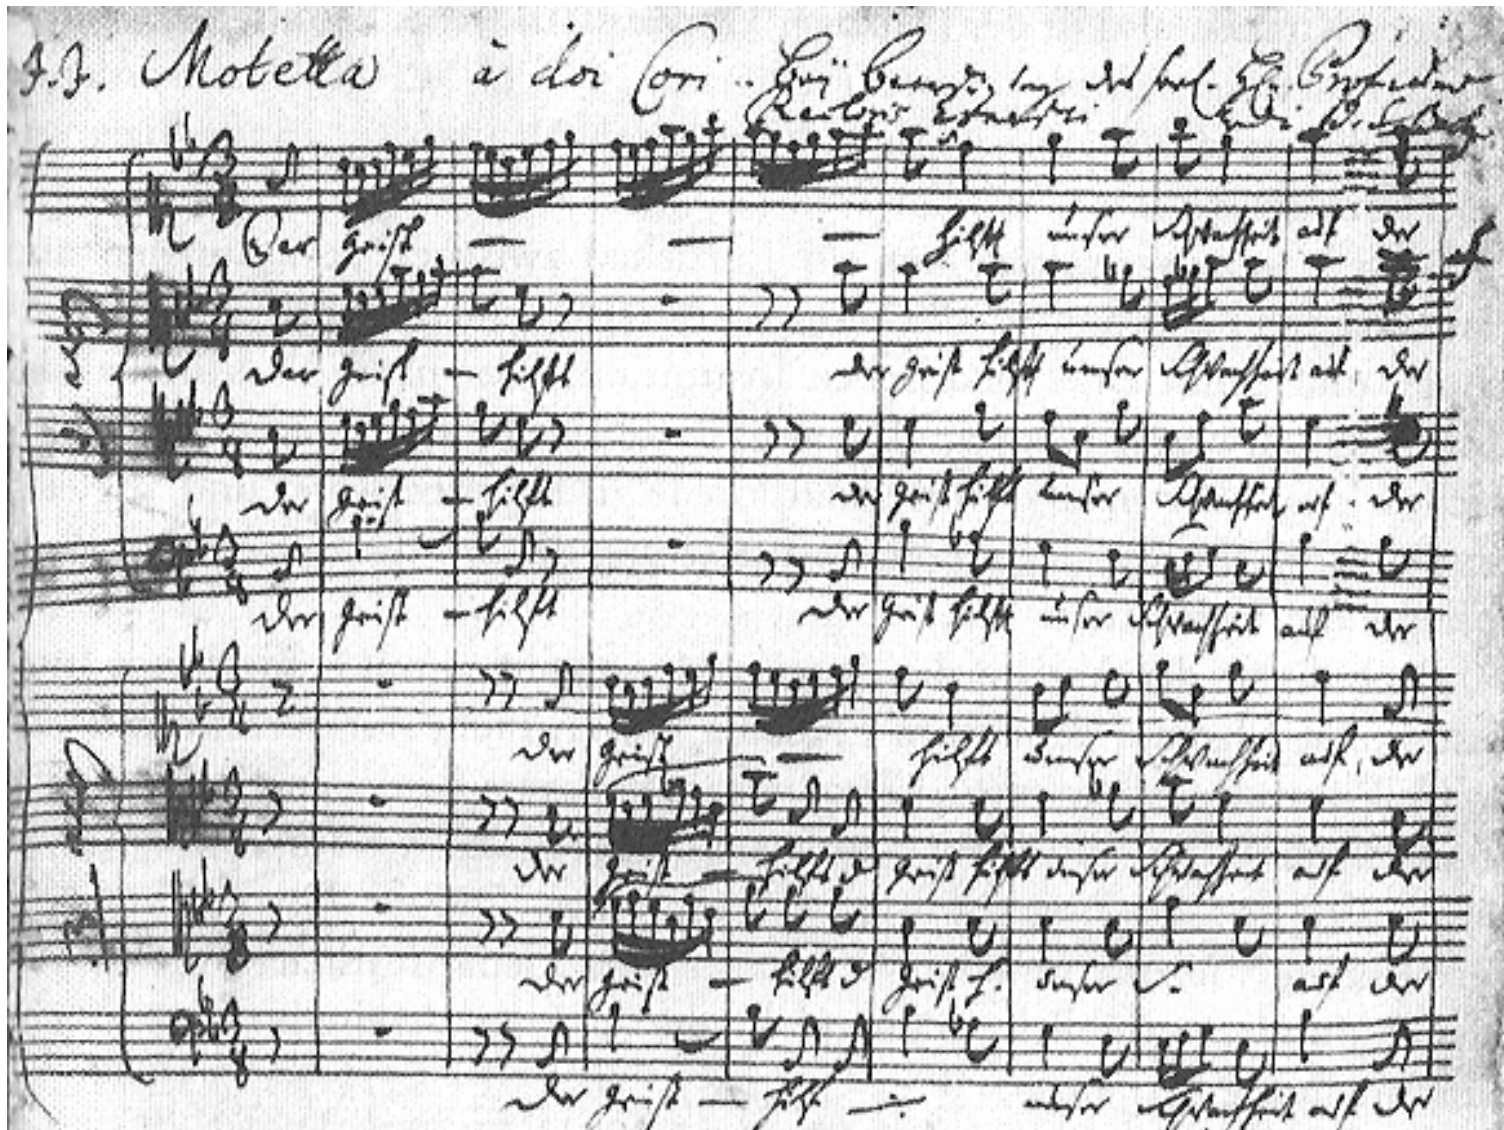 J. J. Motetta à doi Cori .. Bey Beerdigung des seel. Hn. Profeßoris
Rectoris Ernesti di J. S. Bach.
Der Geist hilfft unser Schwachheit auf der
Der Geist hilfft der Geist hilfft unser Schwachheit auf, der
der Geist hilfft der Geist hilfft unser Schwachheit auf. der
der Geist hilfft der Geist hilfft unser Schwachheit auf der
der Geist hilfft unser Schwachheit auf, der
der Geist hilfft d Geist hilfft unser Schwachheit auf der
der Geist hilfft d Geist h. unser S. auf der
der Geist hilfft unser Schwachheit auf der